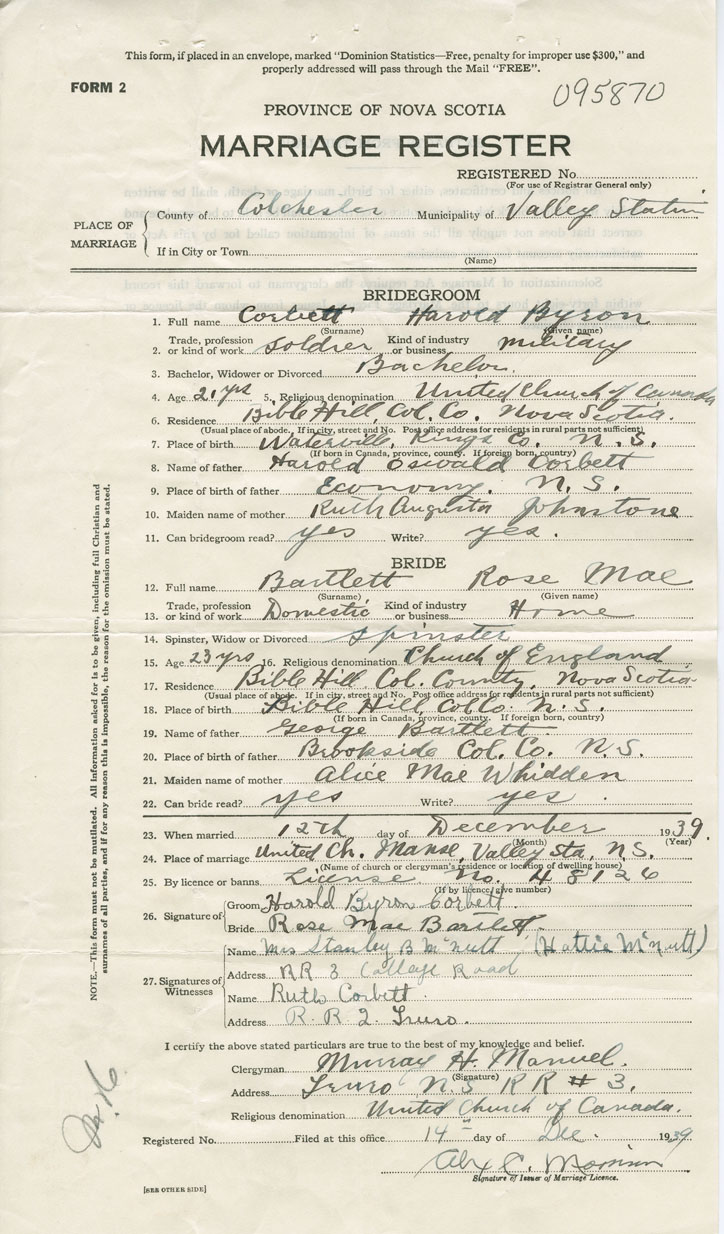 This form, if placed in an envelope, marked "Dominion Statistics—Free, penalty for improper use $300," and
properly addressed will pass through the Mail "FREE".
FORM 2
095870
PROVINCE OF NOVA SCOTIA
MARRIAGE REGISTER
REGISTERED No.
(For use of Registrar General only)
PLACE OF MARRIAGE
County of Colchester Municipality of Valley Station
If in City or Town
(Name)
BRIDEGROOM
1. Full name Corbett Harold Byron
(Surname) (Given name)
2. Trade, profession or kind of work Soldier Kind of industry or business military
3. Bachelor, Widower or Divorced Bachelor.
4. Age 21 yrs 5. Religious denomination United Church of Canada
6. Residence Bible Hill, Col. Co. Nova Scotia.
(Usual place of abode. If in city, street and No. Post office address for residents in rural parts not sufficient)
7. Place of birth Waterville, Kings Co. N. S.
(If born in Canada, province, county. If foreign born, country)
8. Name of father Harold Oswald Corbett
9. Place of birth of father Economy. N. S.
10. Maiden name of mother Ruth Augusta Johnstone
11. Can bridegroom read? yes Write? yes.
BRIDE
12. Full name Bartlett Rose Mae
(Surname) (Given name)
13. Trade, profession or kind of work Domestic Kind of industry or business Home
14. Spinster, Widow or Divorced Spinster
15. Age 23 yrs 16. Religious denomination Church of England
17. Residence Bible Hill Col. County, Nova Scotia
(Usual place of abode. If in city, street and No. Post office address for residents in rural parts not sufficient)
18. Place of birth Bible Hill, Col Co. N. S.
(If born in Canada, province, county. If foreign born, country)
19. Name of father George Bartlett
20. Place of birth of father Brookside Col. Co. N. S.
21. Maiden name of mother Alice Mae Whidden
22. Can bride read? yes Write? yes.
23. When married 12th day of December 1939.
(Month) (Year)
24. Place of marriage United Ch. Manse, Valley Sta, N.S.
(Name of church or clergyman's residence or location of dwelling house)
25. By licence or banns License No. 48126
(If by licence, give number)
26. Signature of
Groom Harold Byron Corbett
Bride Rose Mae Bartlett.
27. Signatures of Witnesses
Name Mrs Stanley B McNutt (Hattie McNutt)
Address RR 3 College Road
Name Ruth Corbett.
Address R. R 2. Truro.
I certify the above stated particulars are true to the best of my knowledge and belief.
Clergyman Murray H. Manuel.
(Signature)
Address Truro N.S RR # 3.
Religious denomination United Church of Canada.
Registered No. Filed at this office 14th day of Dec. 1939
Signature of Issuer of Marriage Licence.
[SEE OTHER SIDE]
NOTE.—This form must not be mutilated. All information asked for is to be given, including full Christian and
surnames of all parties, and if for any reason this is impossible, the reason for the omission must be stated.